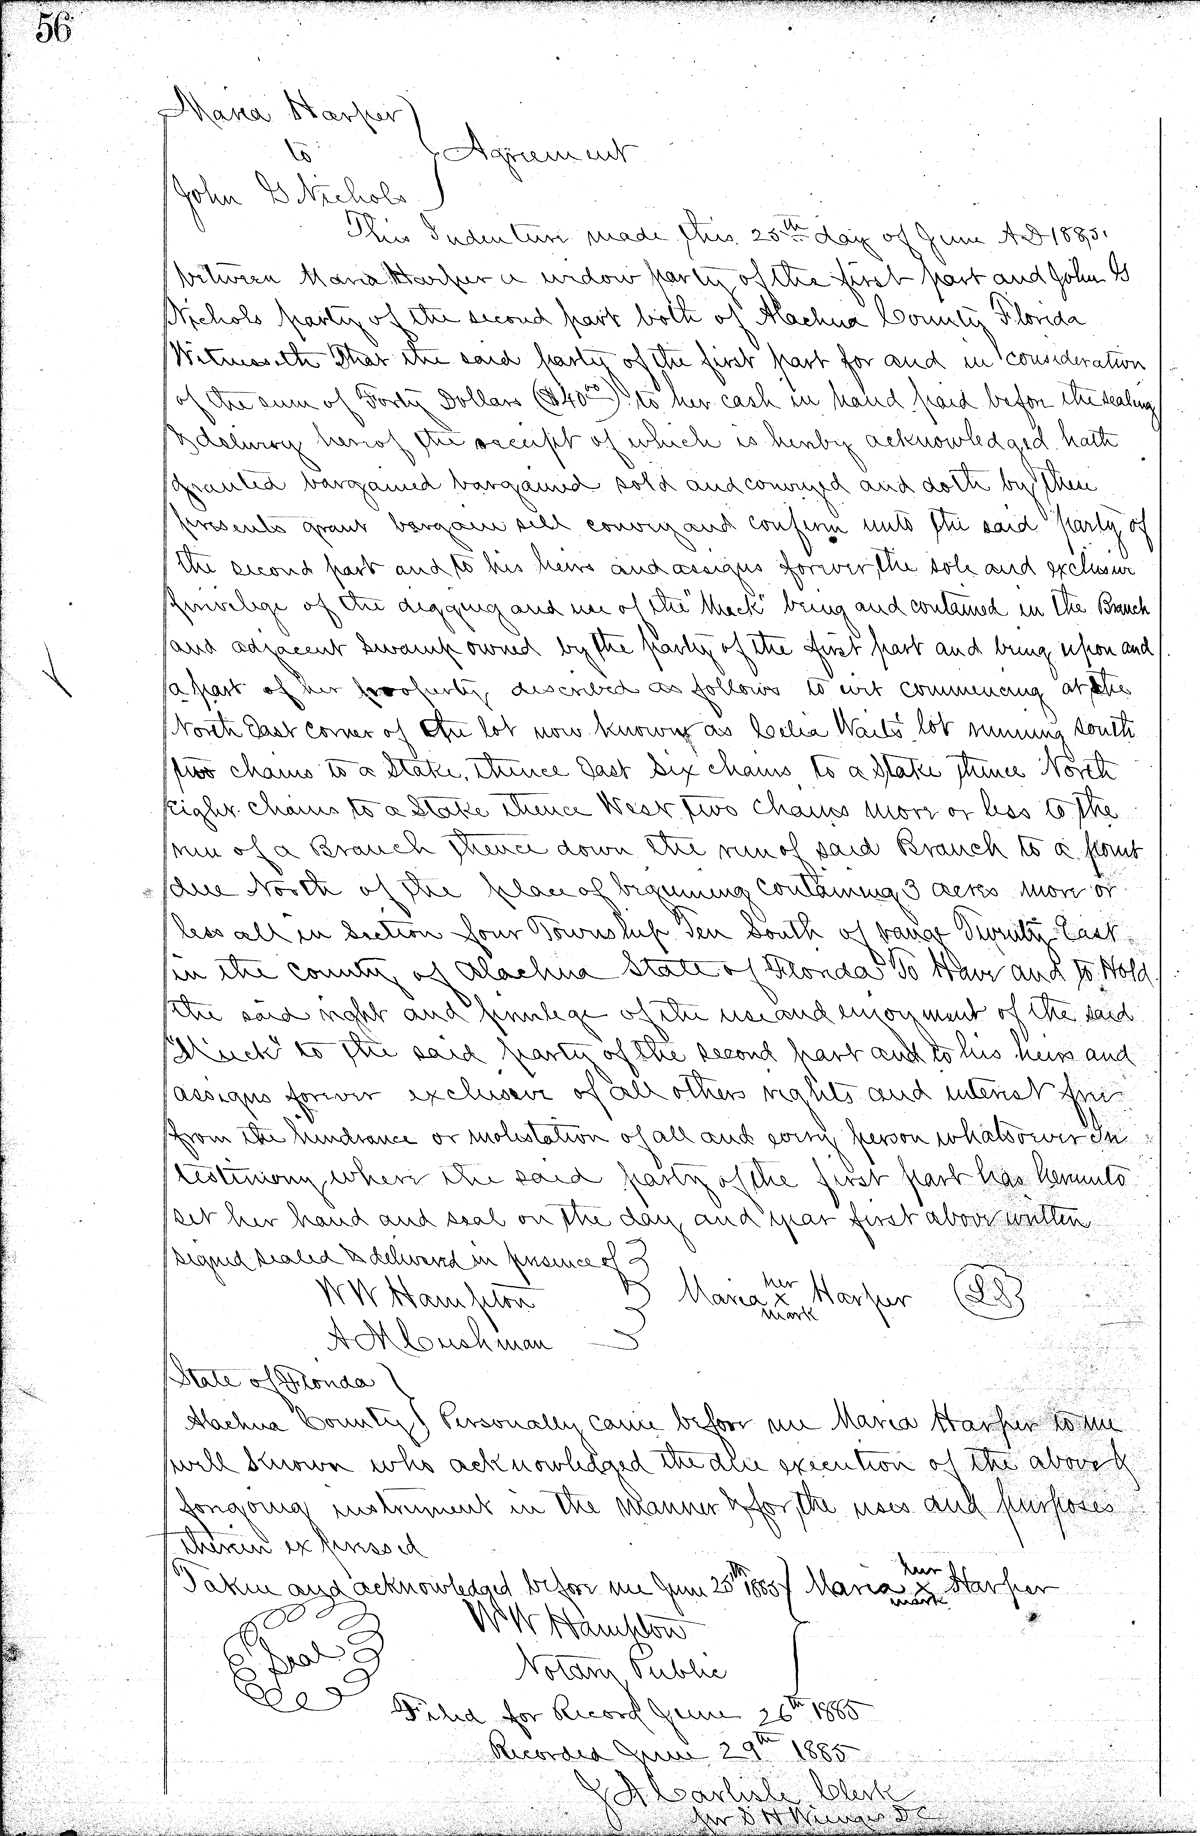 56
Maria Harper
to
Agreement
John G Nichols
This Indenture made this 25th day of June AD 1885.
between Maria Harper a widow party of the first part and John G
Nichols party of the second part both of Alachua County Florida
Witnesseth That the said party of the first part for and in consideration
of the sum of Forty Dollars ($40.00) to her cash in hand paid before the sealing
& delivery hereof the receipt of which is hereby acknowledged hath
granted bargained bargained sold and conveyed and doth by these
presents grant bargain sell convey and confirm unto the said party of
the second part and to his heirs and assigns forever the sole and exclusive
privilege of the digging and use of the "Muck" being and contained in the Branch
and adjacent Swamp owned by the party of the first part and being upon and
a part of her property described as follows to wit commencing at the
North East corner of the lot now known as Celia Waits' lot running south
two chains to a Stake, thence East Six chains to a Stake thence North
eight chains to a Stake thence West two chains more or less to the
run of a Branch thence down the run of said Branch to a point
due North of the place of beginning containing 3 acres more or
less all in Section four Township Ten South of range Twenty East
in the county of Alachua State of Florida To Have and to Hold
the said right and privilege of the use and enjoyment of the said
"Muck" to the said party of the second part and to his heirs and
assigns forever exclusive of all others rights and interest free
from the hindrance or molestation of all and every person whatsoever In
testimony where the said party of the first part has hereunto
set her hand and seal on the day and year first above written
signed sealed & delivered in presence of
W W Hampton
Maria her x mark Harper LS
A M Cushman
State of Florida
Alachua County Personally came before me Maria Harper to me
well known who acknowledged the due execution of the above &
foregoing instrument in the manner & for the uses and purposes
therein expressed
Taken and acknowledged before me June 25th 1885 Maria her x mark Harper
W W Hampton
Seal
Notary Public
Filed for Record June 26th 1885
Recorded June 29th 1885
J A Carlisle Clerk
per S H Wienges D C